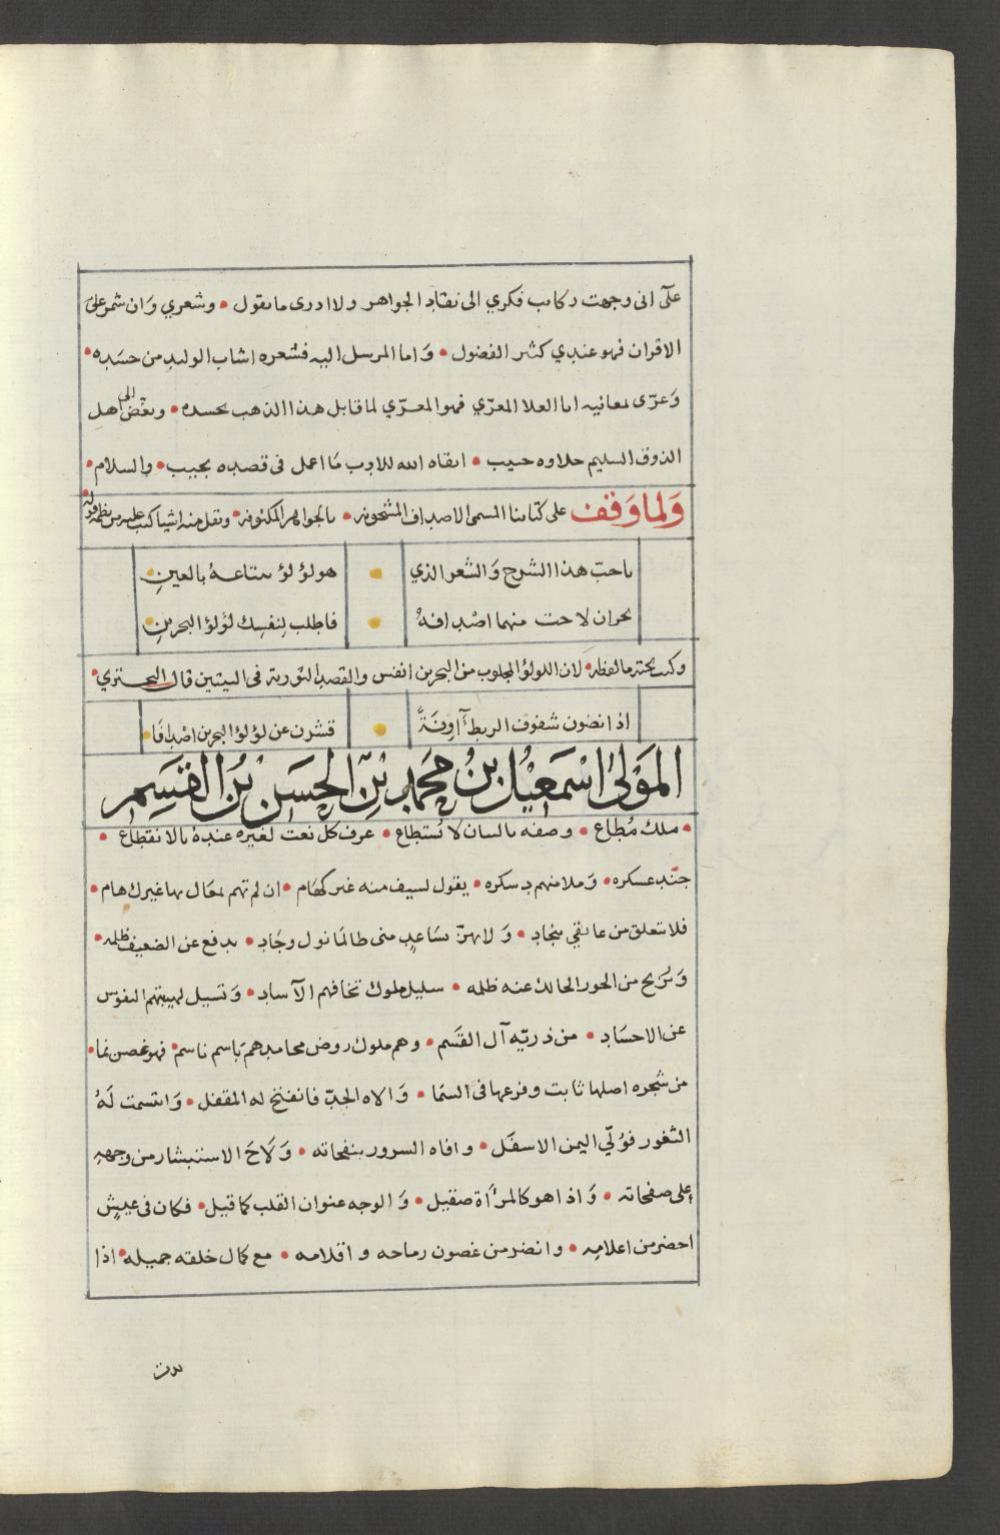 على انى وجهت ركاب فكري الى نقاد الجواهر ولا ادرى ما نقول • وشعري وان شمر على
الاقران فهو عندي كثير الفضول • واما المرسل اليه فشعره اشاب الوليد من حسده •
وعرّى لمعانيه ابا العلا المعرّي فهو المعرّي لما قابل هذا الذهب بحسده • وبعض الى اهل
الذوق السليم حلاوه حبيب • ابقاه الله للادب ما اعمل فى قصده نجيب • والسلام •
وَلما وَقف على كتابنا المسمى الاصداف المشحونه • بالجواهر المكنونه • ونقل منه اشيا كتب عليه من نظمه قوله
يا حبّ هذا الشرح وَالشعر الذي • هو لؤلؤ نبتاعهُ بالعينِ
بحران لاحت منهما اصْدافهُ • فاطلب لِنفسِك لؤلؤ البحرينِ
وكتب تحته ما لفظه • لان اللولؤ المجلوب من البحرين انفس والقصد التورية فى البيتين قال البحتري •
اذا نضون شفوف الريط آونَةً • قشرن عن لؤلؤ البحرين اصْدافَا
المَوْلى اسْمَعيْل بنُ محَمد بنِ الحسَن بْن القسَمِ
• ملك مُطاع • وصفه باللسان لا يُستطاع • عرف كل نعت لغيره عندهُ بالانقطاع •
جنّد عسكره • وَملا منهم دسكره • يقول لسيف منه غير كهام • ان لم تهم بمقال بها غيرك هام •
فلا تتعلق من عاتقي بنجاد • وَلا يهزّ ساعدٍ منى طالمَا نول وجَاد • يدفع عن الضعيف ظلمه •
وَيُزيح من الجور الحالك عنه ظلمه • سليل ملوك تخافهم الآساد • وَتسيل لهيبتهم النفوس
عن الاجسَاد • من ذريّه آل القسَم • وهم ملوك روض محامدهم باسم ناسم • فهو غصن نما •
من شجره اصلها ثابت وفرعها فى السمَا • وَالاه الجدّ فانفتح له المقفل • وَابتسمت لَهُ
الثغور فوُلّي اليمن الاسفَل • وافاه السرور بنفحاته • وَلَاحَ الاستبشار من وجههِ
على صفحاته • وَاذا هو كالمرآة صقيل • وَالوجه عنوان القلب كما قيل • فكان فى عيشٍ
اخضر من اعلامِه • وانضر من غصون رماحه واقلامه • مع كمال خلقه جميله • اذا